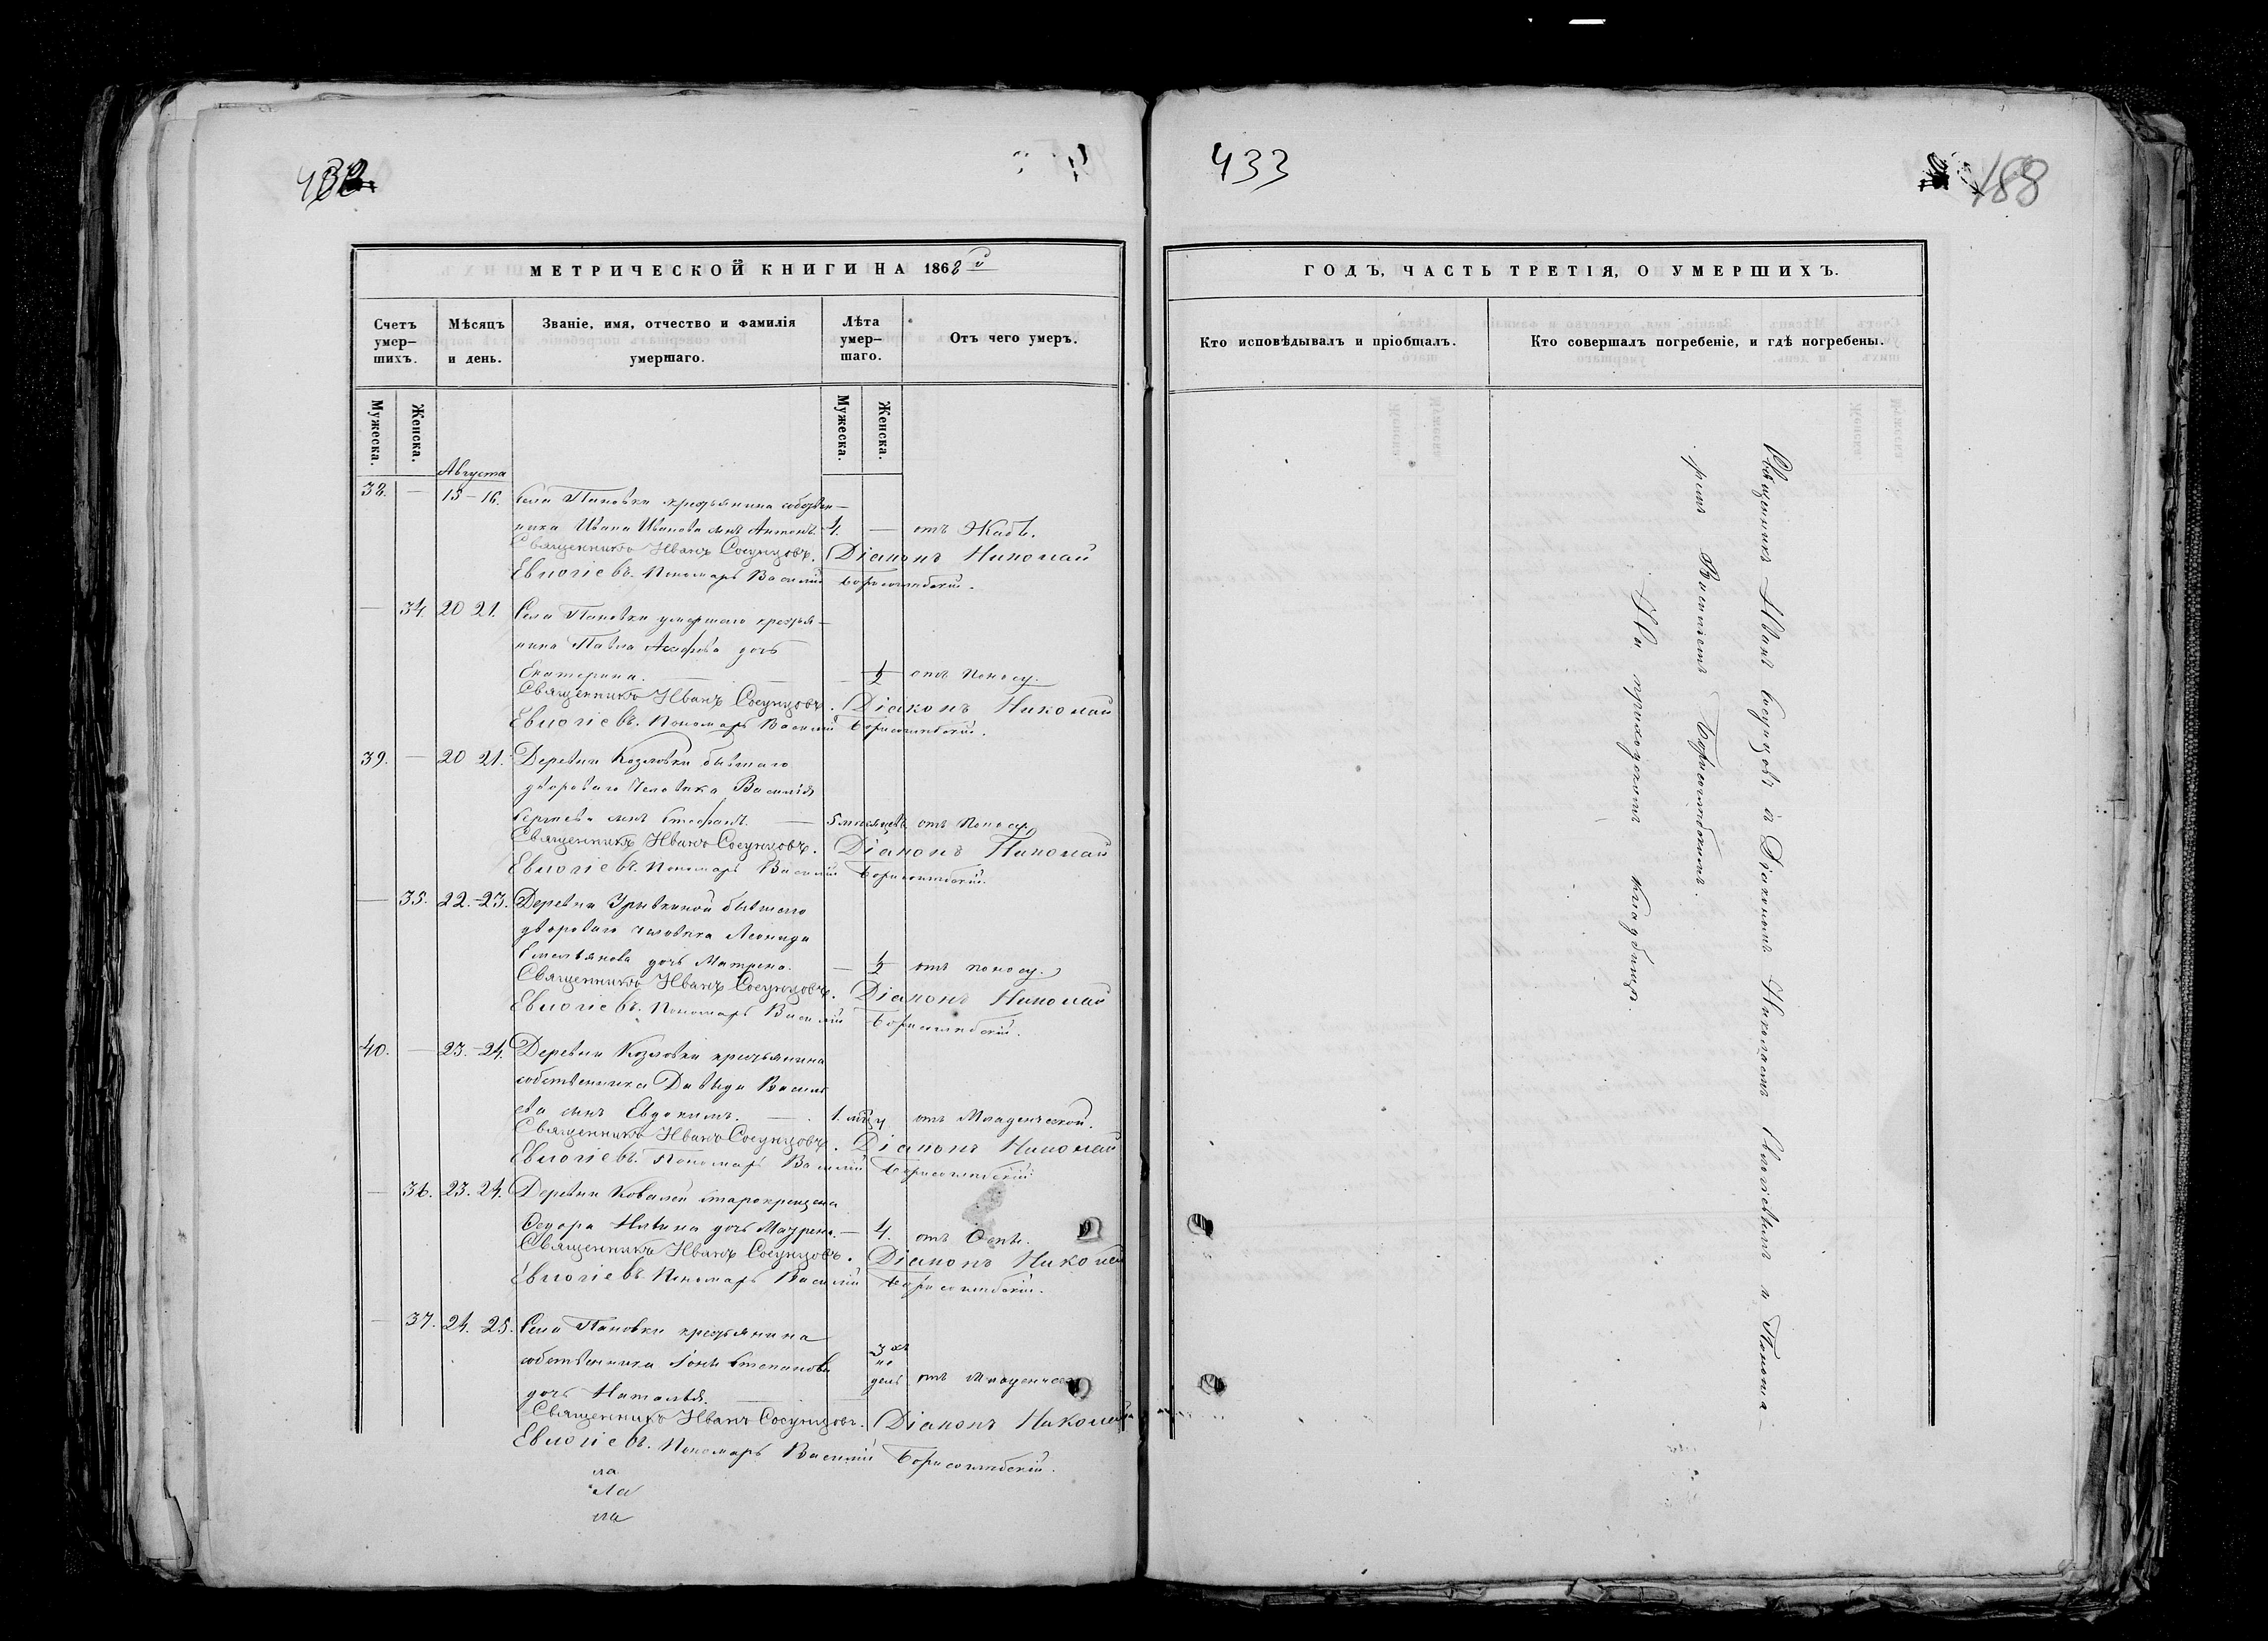 432
МЕТРИЧЕСКОЙ КНИГИ НА 1868й
Счетъ умер-шихъ.
Мѣсяцъ и день.
Званіе, имя, отчество и фамилія умершаго.
Лѣта умер-шаго.
Отъ чего умеръ.
Мужеска.
Женска.
Мужеска.
Женска.
Августа
38. — 15-16. Села Пановки крестьянина собствен-
ника Ивана Иванова сынъ Антонъ. 4. — отъ Жабы.
Священникъ Иванъ Сосунцовъ. Діаконъ Николай
Евлогіевъ. Пономарь Василій Борисоглѣбскій.
— 34. 20 21. Села Пановки умершаго крестья-
нина Павла дочь
Екатерина. — 1/2 отъ поносу.
Священникъ Иванъ Сосунцовъ. Діаконъ Николай
Евлогіевъ. Пономарь Василій Борисоглѣбскій.
39. — 20 21. Деревни Козловки бывшаго
двороваго человѣка Василія
Сергѣева сынъ Стефанъ. — 5 мѣсяцевъ отъ поносу
Священникъ Иванъ Сосунцовъ. Діаконъ Николай
Евлогіевъ. Пономарь Василій Борисоглѣбскій.
— 35. 22.-23. Деревни бывшаго
двороваго человѣка Леонида
Емельянова дочь Матрена. — 1/2 отъ поносу.
Священникъ Иванъ Сосунцовъ. Діаконъ Николай
Евлогіевъ. Пономарь Василій Борисоглѣбскій.
40. — 23.-24. Деревни Козловки крестьянина
собственника Давыда Василь
ева сынъ Евдокимъ. — 1. мцъ отъ Младенческой.
Священникъ Иванъ Сосунцовъ. Діаконъ Николай
Евлогіевъ. Пономарь Василій Борисоглѣбскій
— 36. 23. 24. Деревни Ковалей старокрещена
Ѳедора дочь — 4. отъ Оспы.
Священникъ Иванъ Сосунцовъ. Діаконъ Николай
Евлогіевъ. Пономарь Василій Борисоглѣбскій.
— 37. 24. 25. Села Пановки крестьянина
собственника Іоны Степанова 3хъ не
дочь Наталья. — дель отъ Младенческой
Священникъ Иванъ Сосунцовъ. Діаконъ Николай
Евлогіевъ. Пономарь Василій Борисоглѣбскій.
ла
ла
ла
433
188
ГОДЪ, ЧАСТЬ ТРЕТІЯ, О УМЕРШИХЪ.
Кто исповѣдывалъ и пріобщалъ.
Кто совершалъ погребеніе, и гдѣ погребены.
Священникъ Иванъ Сосунцовъ съ Діакономъ Николаемъ Евлогіевымъ и Понома-
ремъ Василіемъ Борисоглѣбскимъ.
На приходскомъ кладбищѣ.